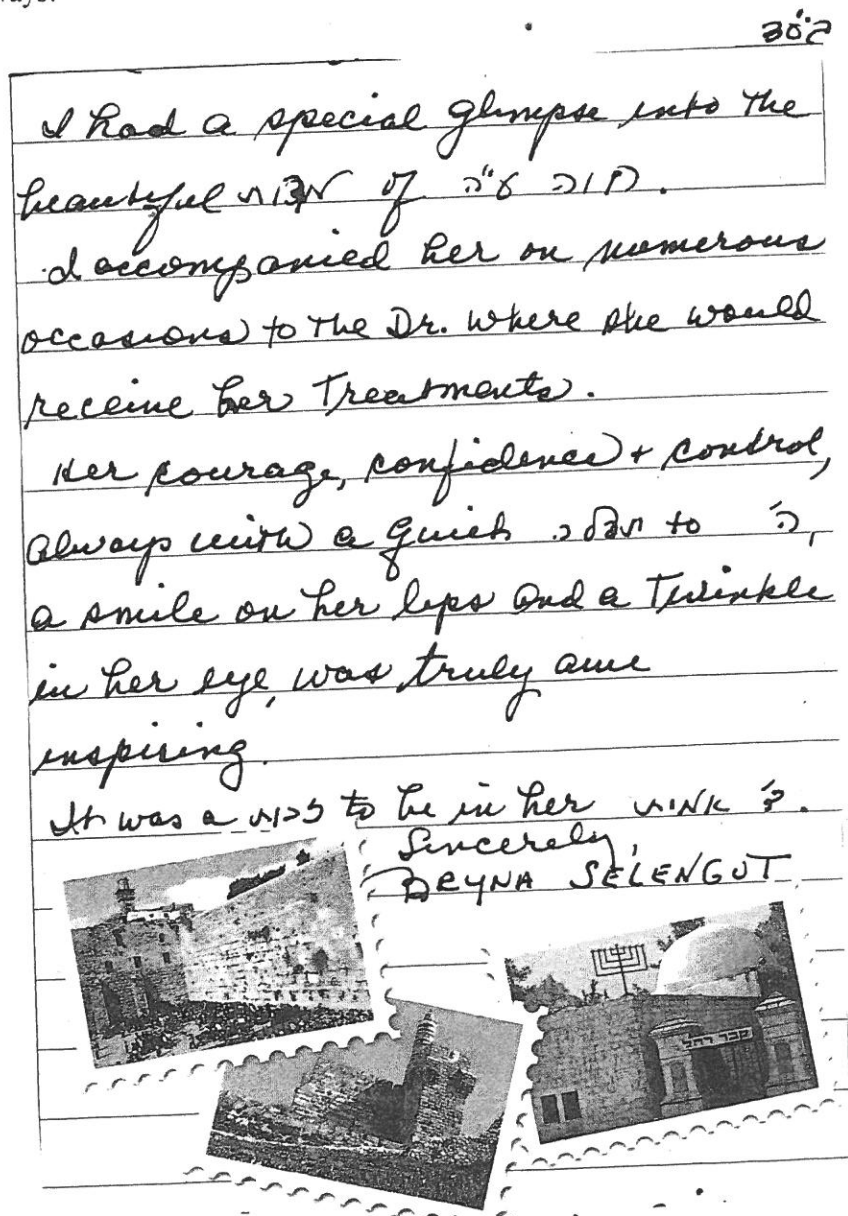 בס"ד
I had a special glimpse into the
beautiful מדות of חוה ע"ה.
I accompanied her on numerous
occasions to the Dr. where she would
receive her Treatments.
Her courage, confidence + control,
always with a quick תפלה to ה',
a smile on her lips and a Twinkle
in her eye, was truly awe
inspiring.
It was a זכות to be in her ד' אמות.
Sincerely,
BRYNA SELENGUT
קבר רחל